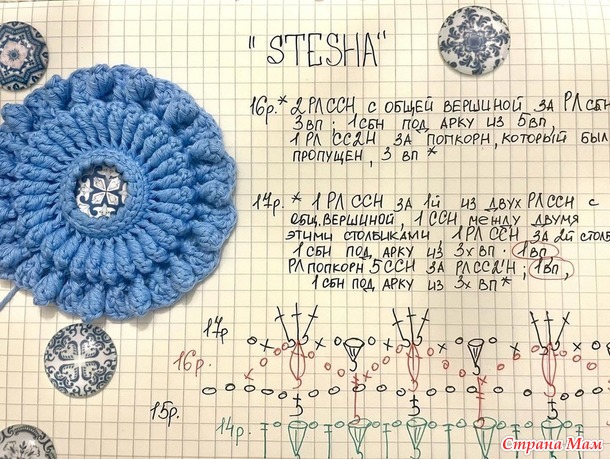 "STESHA"
16р.* 2 РЛССН С ОБЩЕЙ ВЕРШИНОЙ ЗА РЛ СБН
3ВП; 1СБН ПОД АРКУ ИЗ 5ВП,
1 РЛ СС2Н ЗА ПОПКОРН, КОТОРЫЙ БЫЛ
ПРОПУЩЕН, 3 ВП *
17р. * 1 РЛ ССН ЗА 1й ИЗ ДВУХ РЛССН С
ОБЩ. ВЕРШИНОЙ, 1 ССН МЕЖДУ ДВУМЯ
ЭТИМИ СТОЛБИКАМИ, 1РЛ ССН ЗА 2й СТОЛБ
1 СБН ПОД АРКУ ИЗ 3х ВП; 1ВП,
РЛ ПОПКОРН 5ССН ЗА РЛСС2Н; 1ВП,
1 СБН ПОД АРКУ ИЗ 3х ВП *
17р
16р.
15р.
14р.
Страна Мам